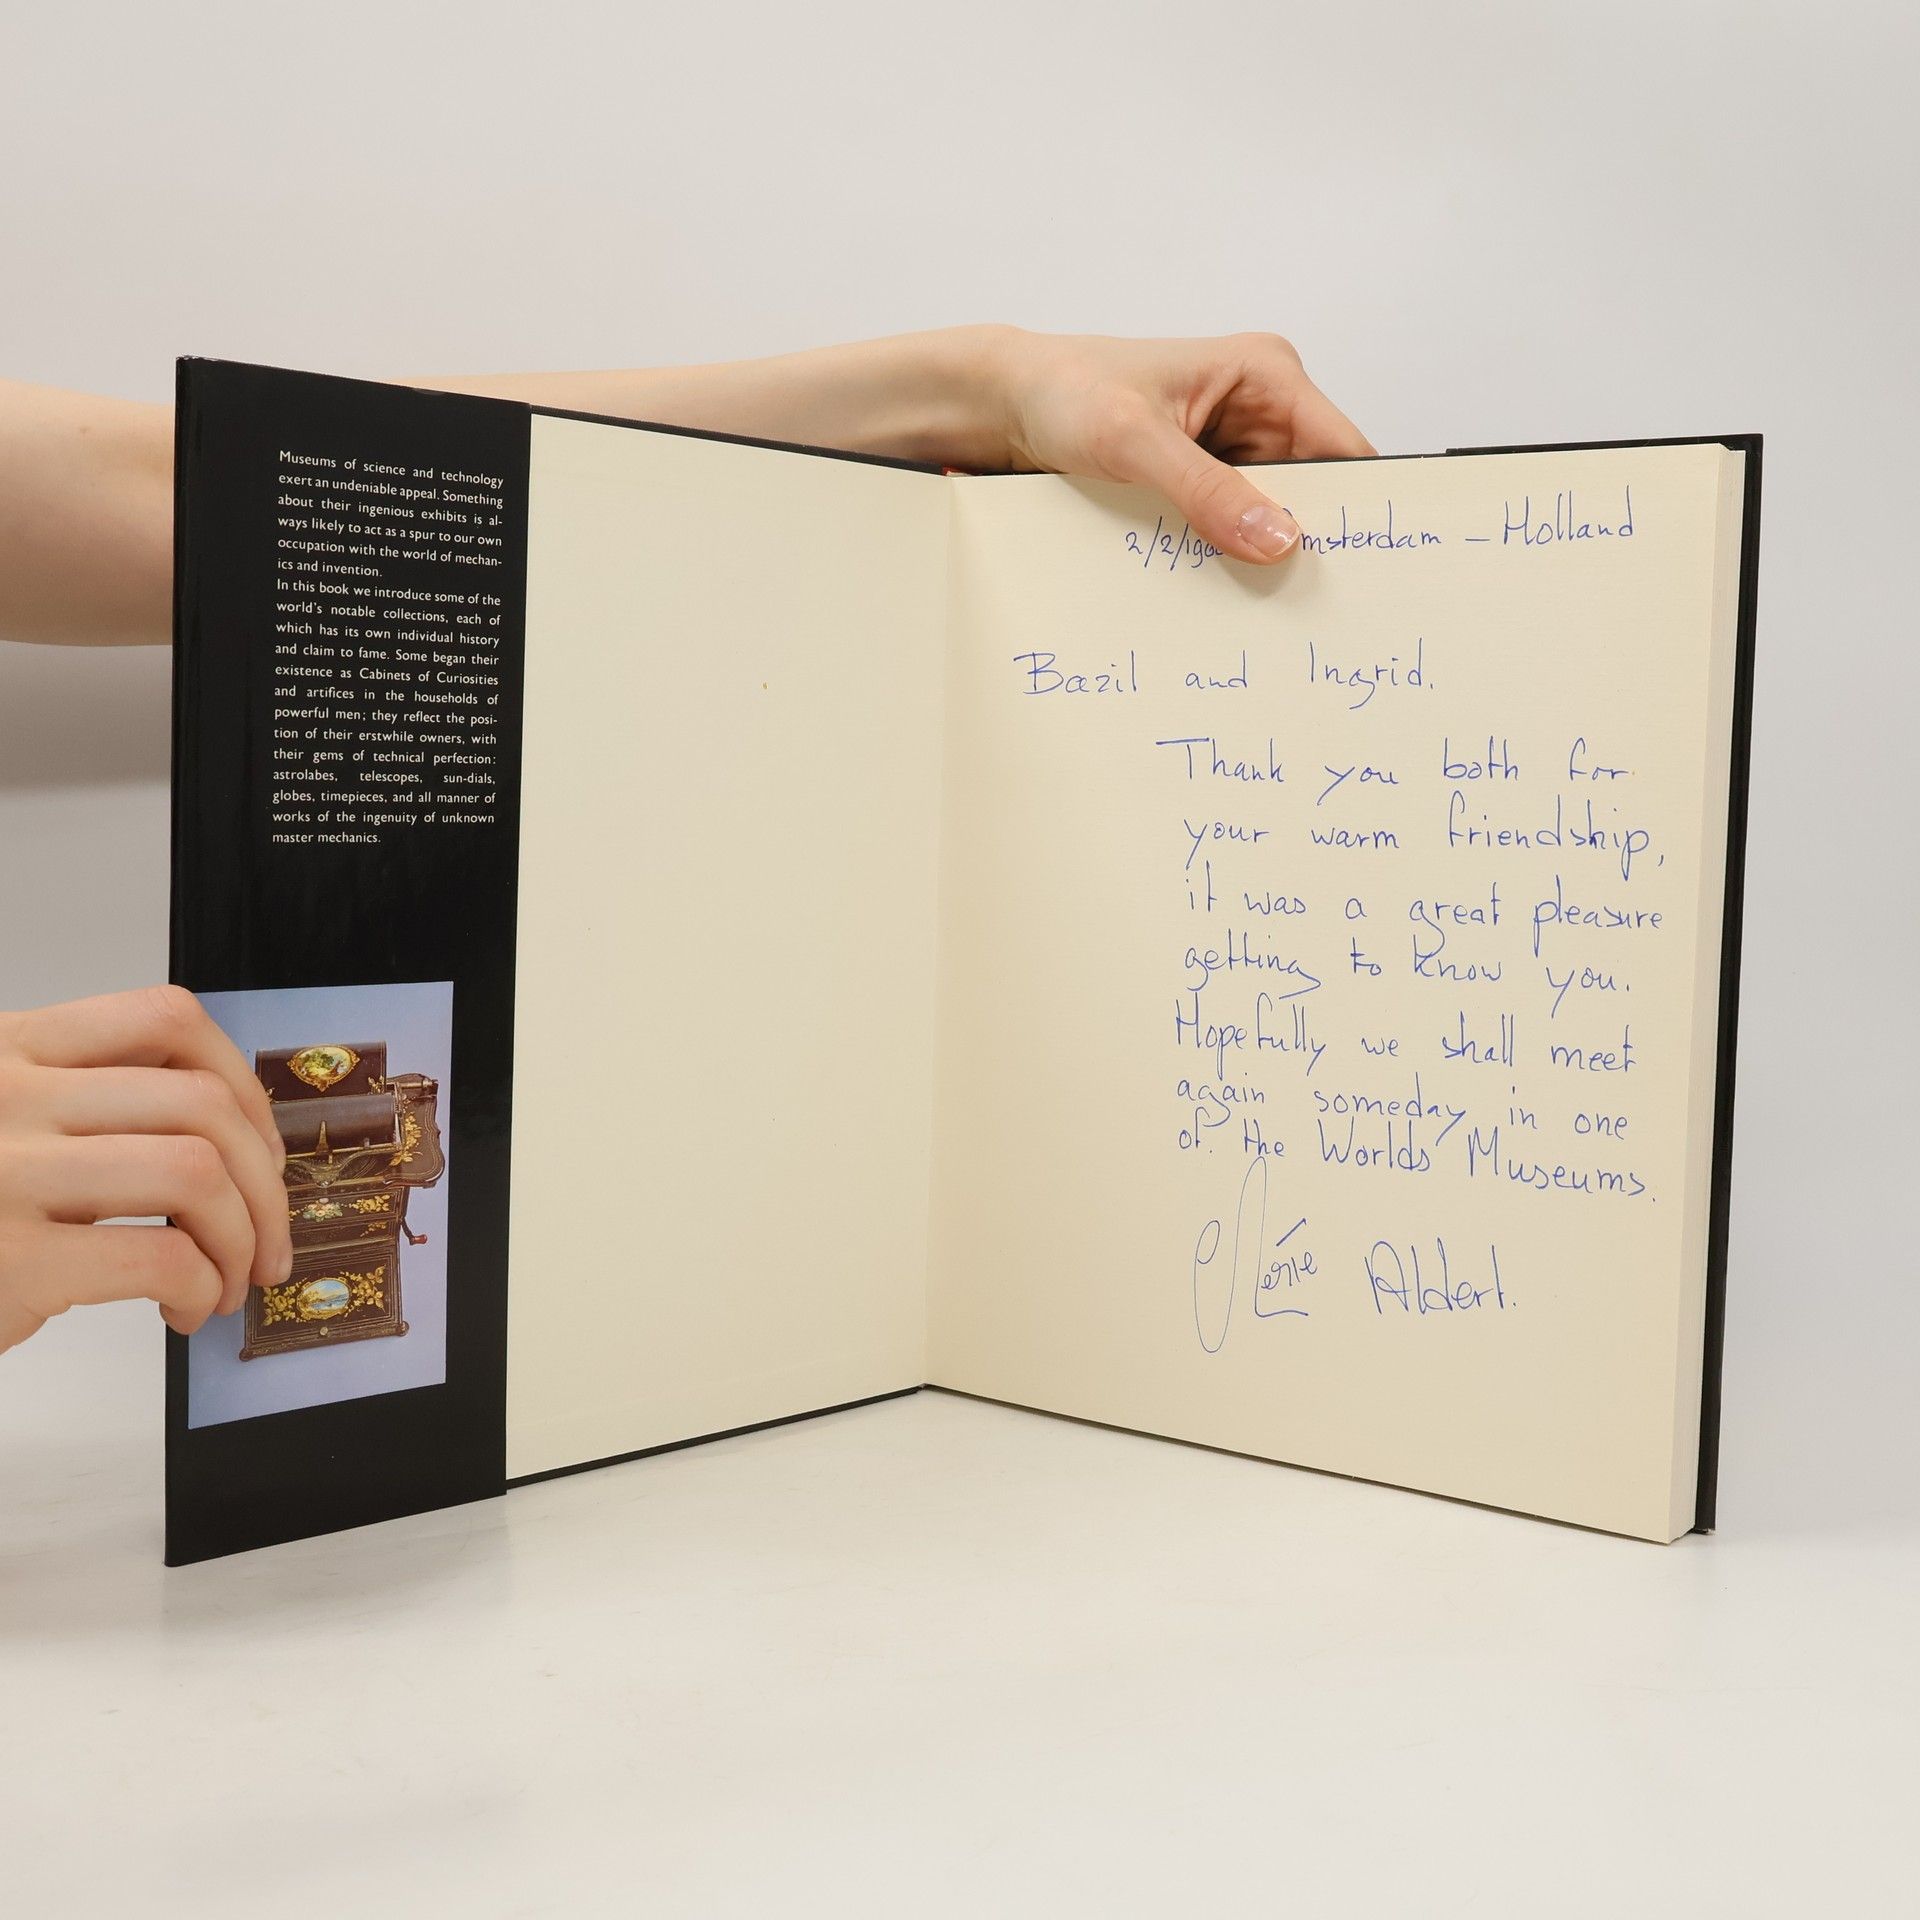 Museums of science and technology
exert an undeniable appeal. Something
about their ingenious exhibits is al-
ways likely to act as a spur to our own
occupation with the world of mechan-
ics and invention.
In this book we introduce some of the
world's notable collections, each of
which has its own individual history
and claim to fame. Some began their
existence as Cabinets of Curiosities
and artifices in the households of
powerful men; they reflect the posi-
tion of their erstwhile owners, with
their gems of technical perfection:
astrolabes, telescopes, sun-dials,
globes, timepieces, and all manner of
works of the ingenuity of unknown
master mechanics.
2/2/19 msterdam – Holland
Bazil and Ingrid.
Thank you both for
your warm friendship,
it was a great pleasure
getting to know you.
Hopefully we shall meet
again someday in one
of the Worlds Museums.
Aldert.